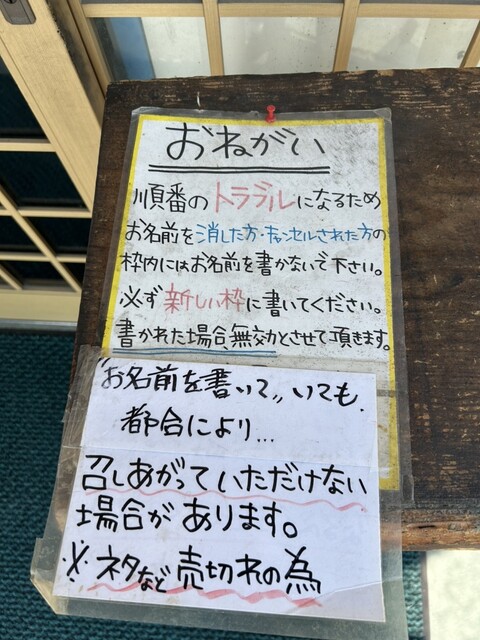 おねがい
順番のトラブルになるため
お名前を消した方・キャンセルされた方の
枠内にはお名前を書かないで下さい。
必ず新しい枠に書いてください。
書かれた場合、無効とさせて頂きます。
"お名前を書いて"いても、
都合により...
召しあがっていただけない
場合があります。
※ネタなど売切れの為